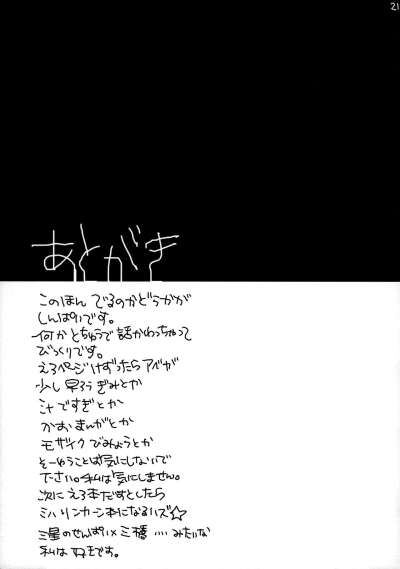 21
あとがき
このほん でるのかどうかが
しんぱいです。
何かとちゅうで話かわっちゃって
びっくりです。
えろページけずったらアベが
少し早ろうぎみとか
汁ですぎとか
かおまんがとか
モザイクびみょうとか
そーゆうことは気にしないで
下さい。私は気にしません。
次にえろ本だすとしたら
ミハリンカーン本になるハズ☆
三星のせんぱい×三橋……みたいな
私は好きです。